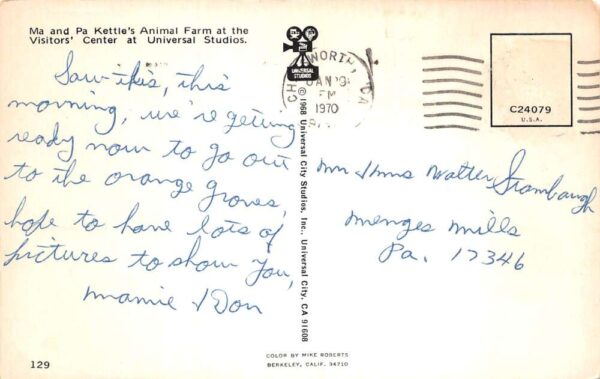 Ma and Pa Kettle's Animal Farm at the
Visitors' Center at Universal Studios.
Saw this, this
morning, we're getting
ready now to go out
to the orange groves,
hope to have lots of
pictures to show you,
Mamie & Don
UNIVERSAL
STUDIOS
© 1968 Universal City Studios, Inc., Universal City, CA 91608
WORTH, CA
JAN 19
PM
1970
C24079
U.S.A.
Mr & Mrs Walter Stambaugh
Menges Mills
Pa. 17346
129
COLOR BY MIKE ROBERTS
BERKELEY, CALIF. 94710